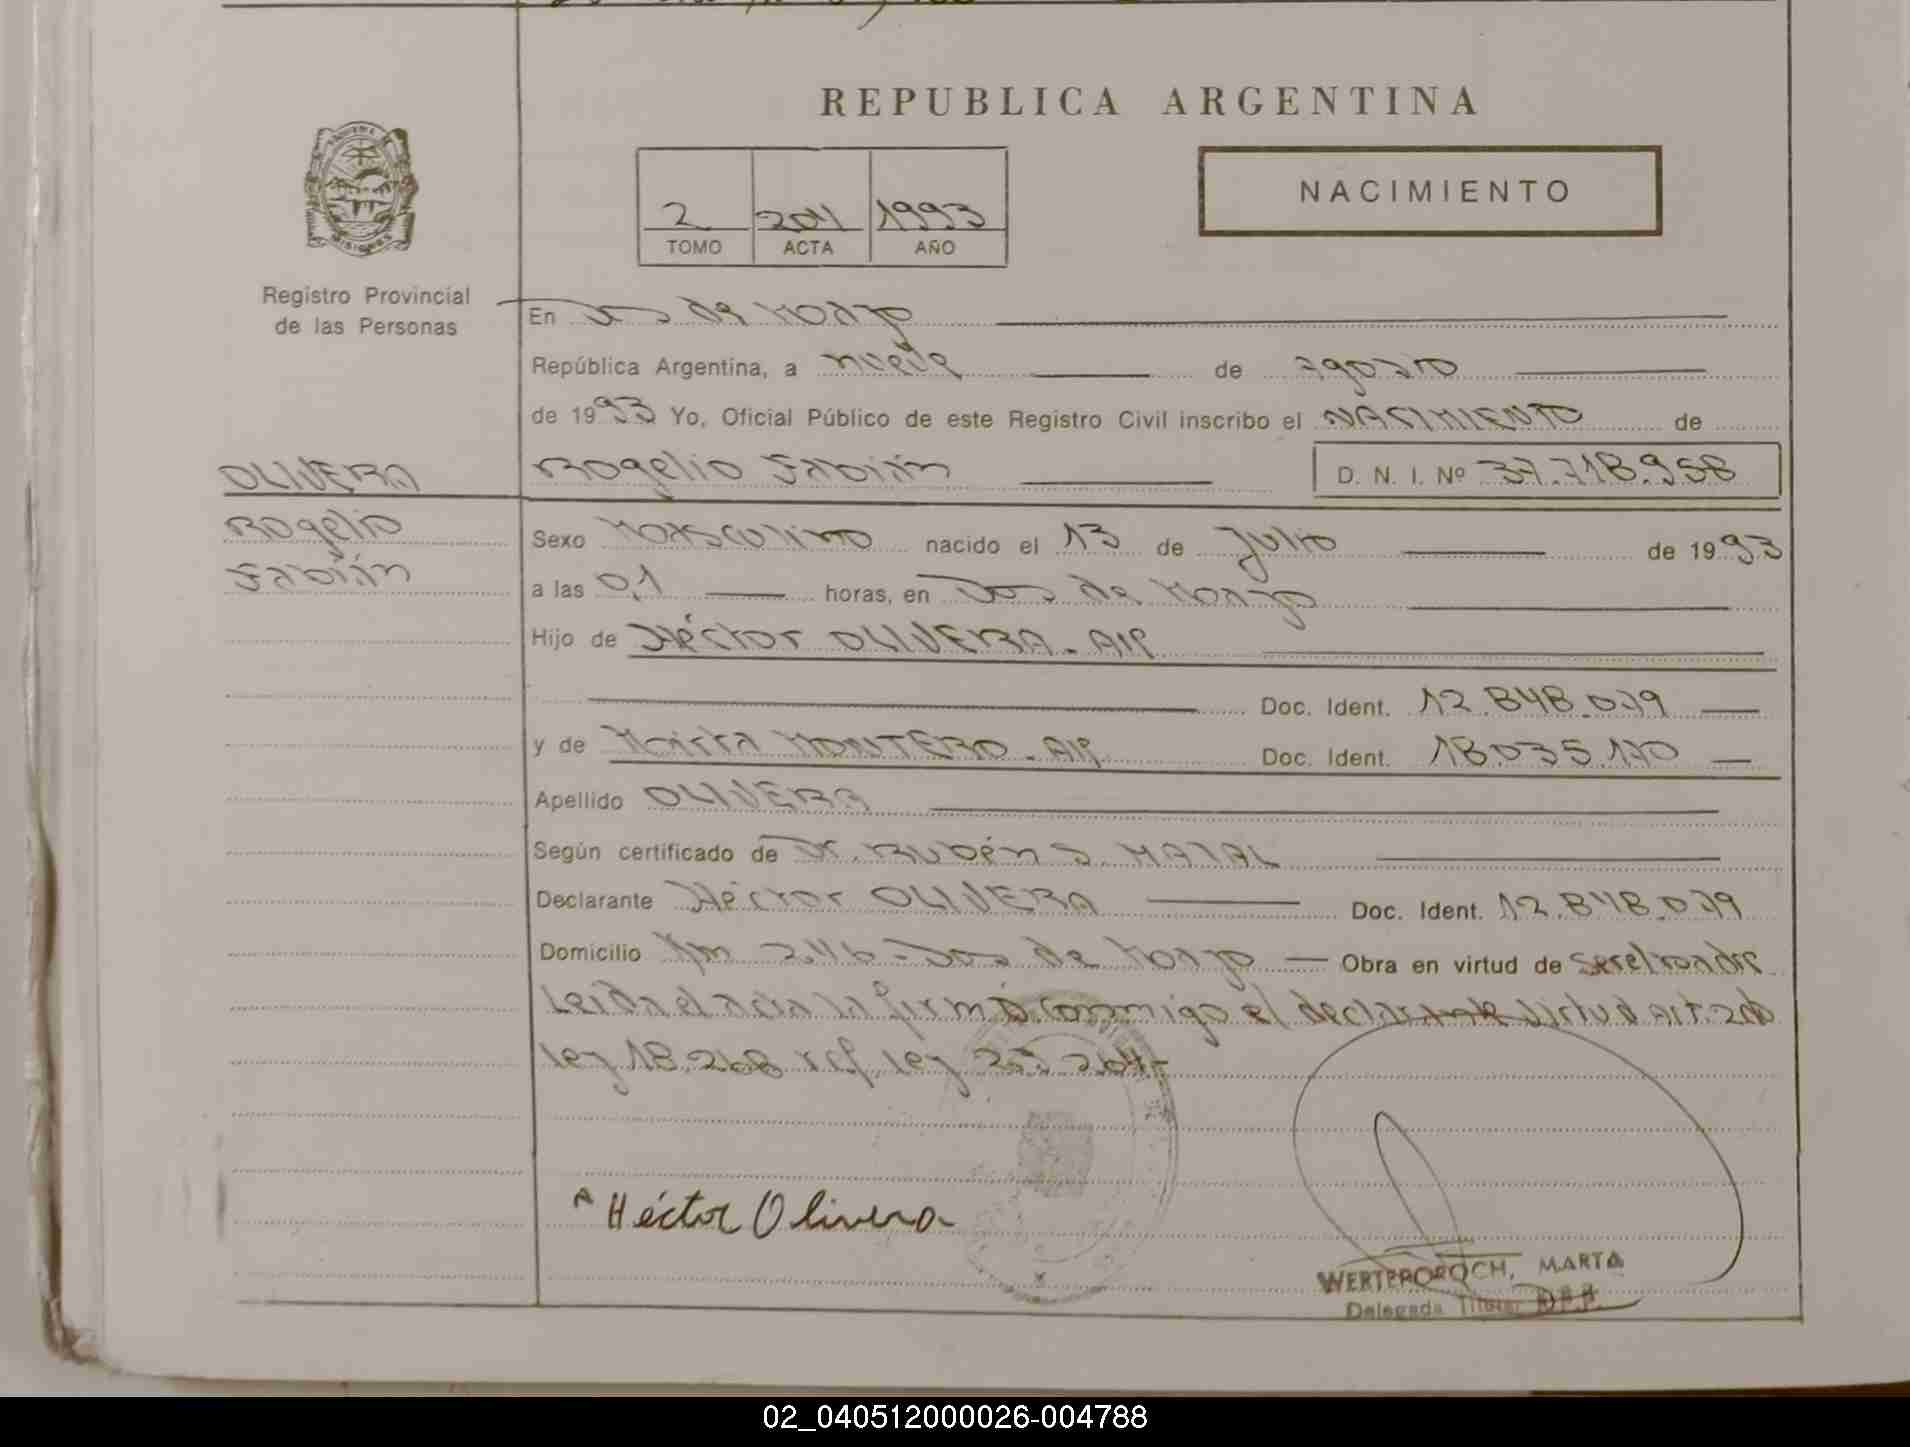 REPUBLICA ARGENTINA
NACIMIENTO
2 204 1993
TOMO ACTA AÑO
Registro Provincial
de las Personas
En Dos de Mayo
República Argentina, a nueve de agosto
de 1993 Yo, Oficial Público de este Registro Civil inscribo el NACIMIENTO de
OLIVERA
Rogelio Fabián D. N. I. Nº 37.718.958
Rogelio
Fabián
Sexo Masculino nacido el 13 de Julio de 1993
a las 01 horas, en Dos de Mayo
Hijo de Héctor OLIVERA. Arg.
Doc. Ident. 12.848.079
y de MONTERO. Arg. Doc. Ident. 18.035.170
Apellido OLIVERA
Según certificado de Dr. Rubén D.
Declarante Héctor OLIVERA Doc. Ident. 12.848.079
Domicilio Km 246 - Dos de Mayo — Obra en virtud de ser el padre
Leída el acta la firmó conmigo el declarante virtud Art.
ley 18.268 ref. ley
Héctor Olivera
MARTA
Delegada Titular
02_040512000026-004788